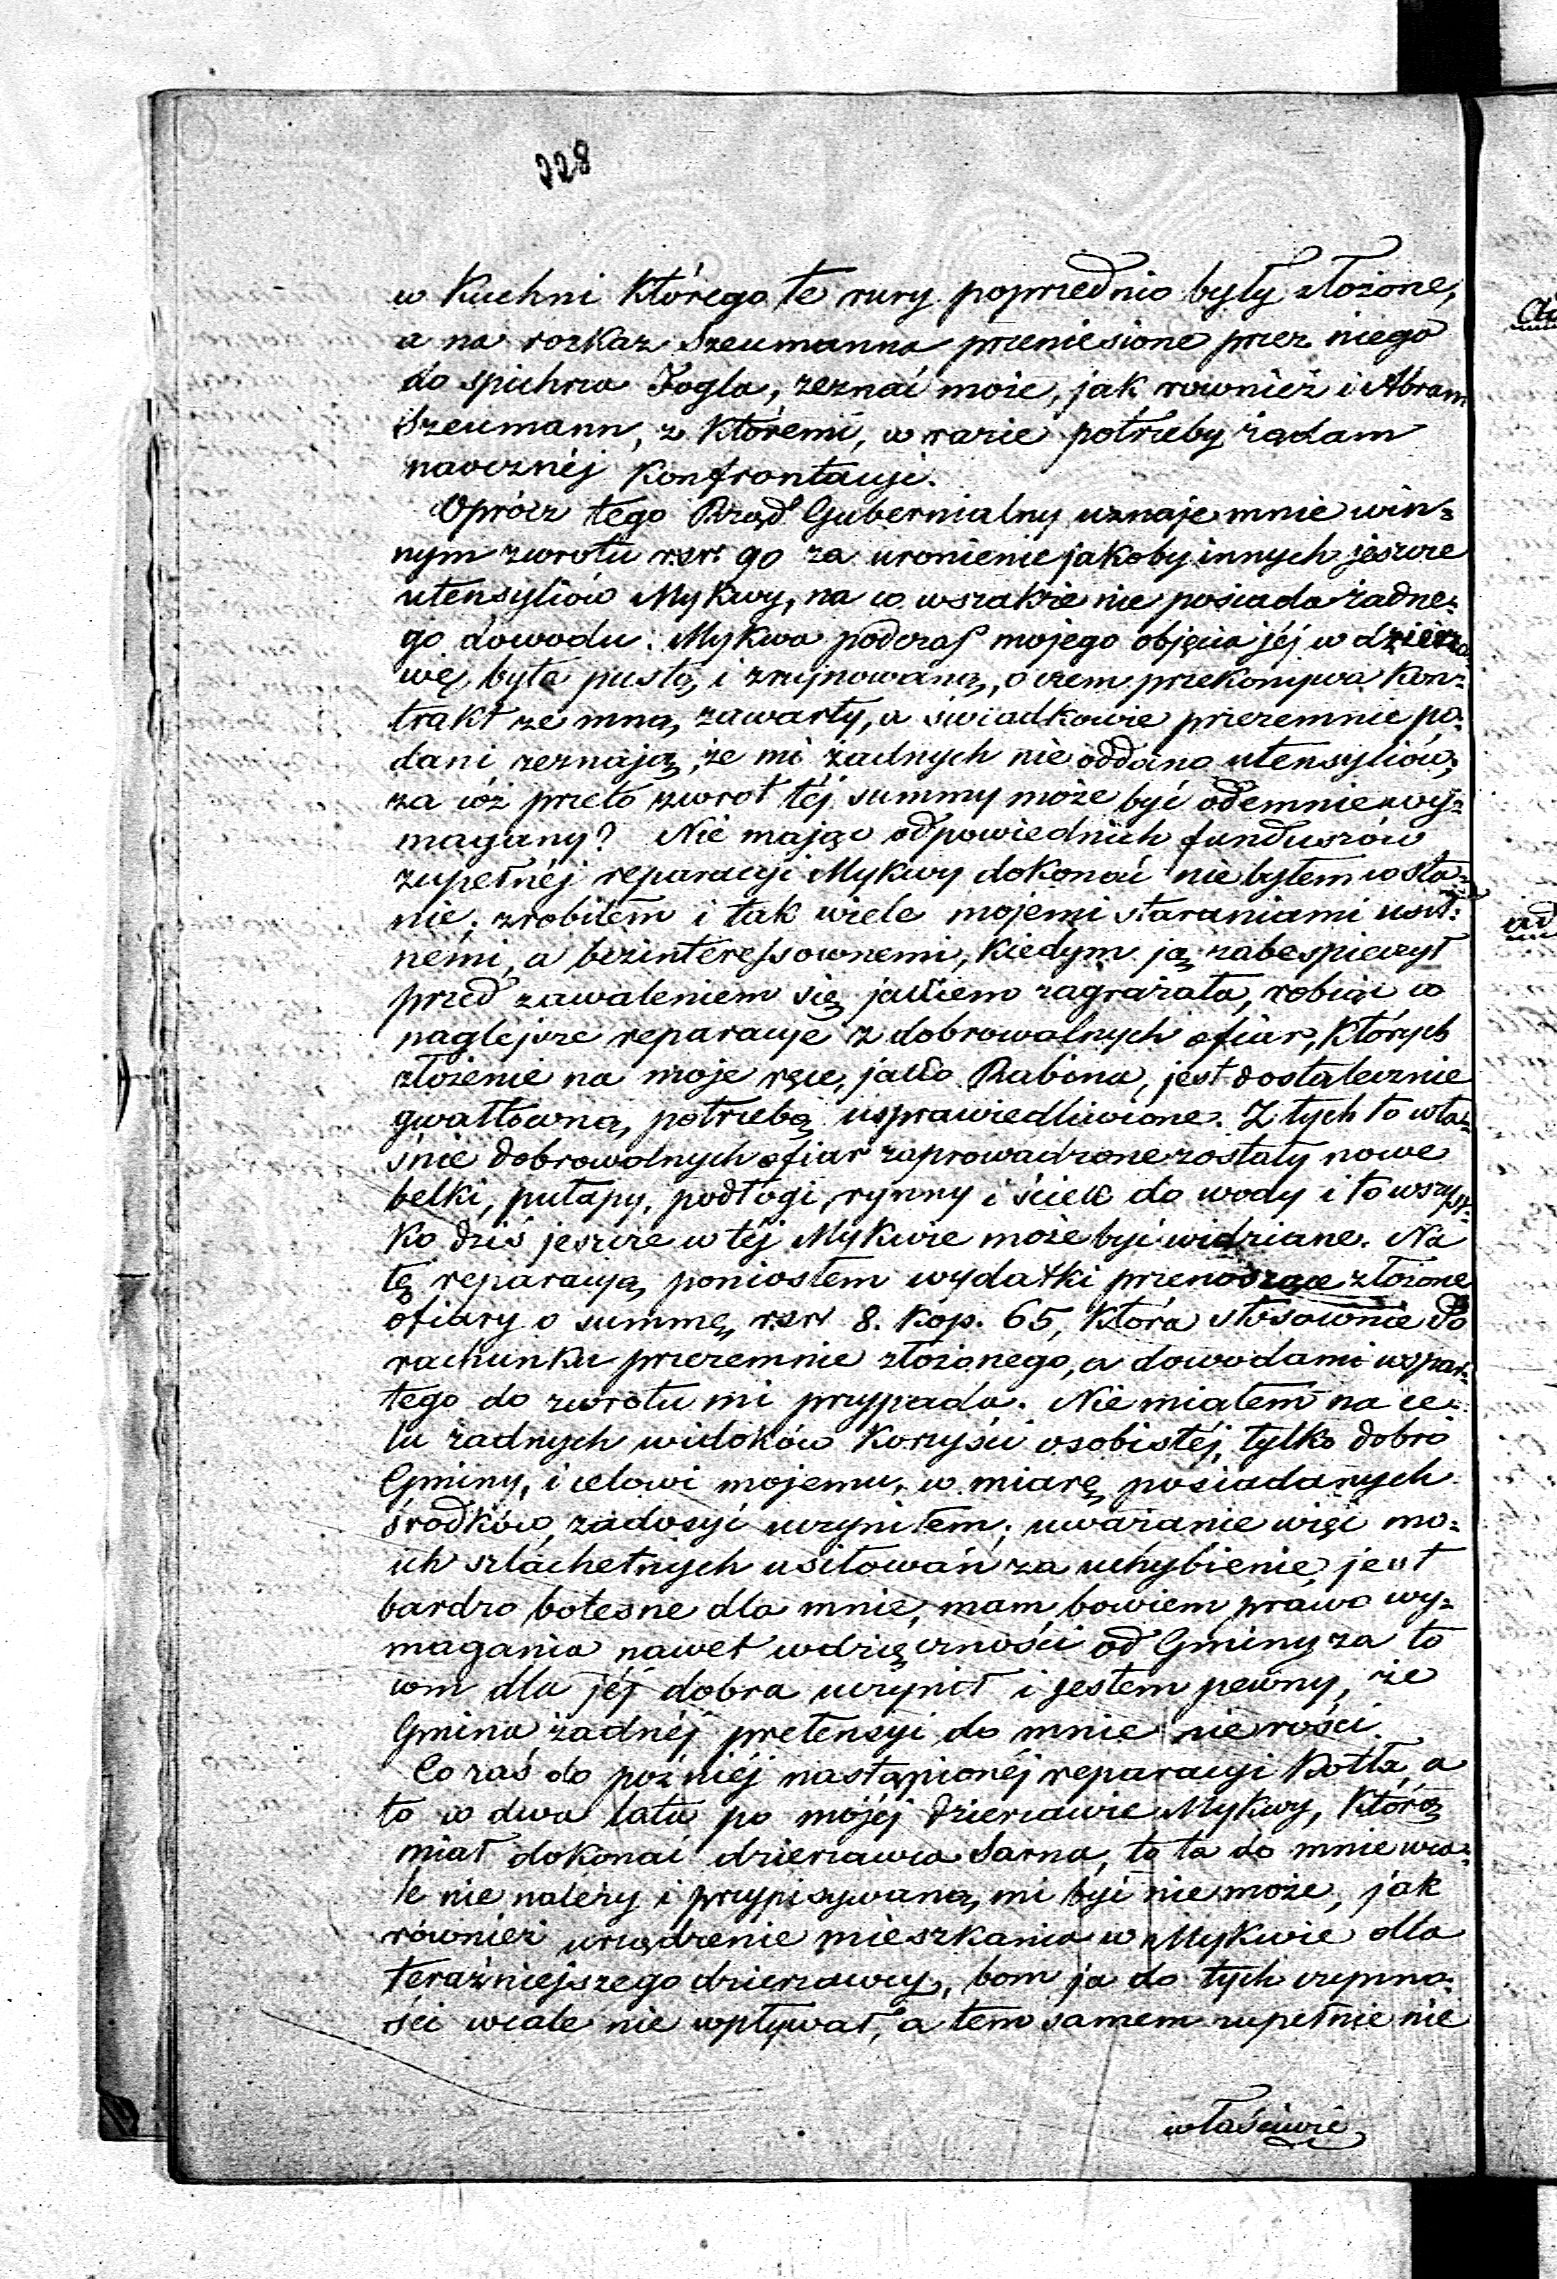 228
w Kuchni którego te rury poprzednio były złożone,
a na rozkaz Szeumanna przeniesione przez niego
do spichrza Fogla, zeznać może, jak rownież i Abram
Szeumann, z któremi, w razie potrzeby żądam
naocznéj Konfrontacyi.
Oprócz tego Rząd Gubernialny uznaje mnie win=
nym zwrotu rsr. 90 za uronienie jakoby innych jeszcze
utensyliów Mykwy, na co wszakże nie posiada żadne=
go dowodu. Mykwa podczas mojego objęcia jéj w dzierża=
wę była pustą i zrujnowaną, o czem przekonywa Kon=
trakt ze mną zawarty, a świadkowie przezemnie po=
dani zeznają, że mi żadnych nie oddano utensyliów,
za cóż przeto zwrot téj summy może być odemnie wy=
magany? Nie mając odpowiednich funduszów
zupełnéj reparacyi Mykwy dokonać nie byłem w sta=
nie; zrobiłem i tak wiele mojemi staraniami usil=
nemi, a bezinteressownemi, kiedym ją zabespieczył
przed zawaleniem się jakiem zagrażała, robiąc co
naglejsze reparacye z dobrowolnych ofiar, których
złożenie na moje ręce, jako Rabina, jest dostatecznie
gwałtowną potrzebą usprawiedliwione. Z tych to wła=
śnie dobrowolnych ofiar zaprowadzone zostały nowe
belki, pułapy, podłogi, rynny i ściek do wody i to wszyst=
ko dziś jeszcze w téj Mykwie może być widziane. Na
tę reparacyą poniosłem wydatki przenoszące złożone
ofiary o summę rsr 8. Kop. 65, która stosownie do
rachunku przezemnie złożonego, a dowodami wspar=
tego do zwrotu mi przypada. Nie miałem na ce=
lu żadnych widoków Korzyści osobistéj, tylko dobro
Gminy, i celowi mojemu, w miarę posiadanych
środków, zadosyć uczyniłem; uważanie więc mo=
ich szlachetnych usiłowań za uchybienie, jest
bardzo bolesne dla mnie, mam bowiem prawo wy=
magania nawet wdzięczności od Gminy za to
com dla jéj dobra uczynił i jestem pewny, że
Gmina żadnéj pretensyi do mnie nie rości.
Co zaś do poźniéj nastąpionéj reparacyi Kotła, a
to w dwa lata po mojéj dzierżawie Mykwy, którą
miał dokonać dzierżawca Sarna, to ta do mnie wca=
le nie należy i przypisywaną mi być nie może, jak
równiéż urządzenie mieszkania w Mykwie dla
teraźniejszego dzierżawcy, bom ja do tych czynno=
ści wcale nie wpływał, a tem samem zupełnie nie
właściwie